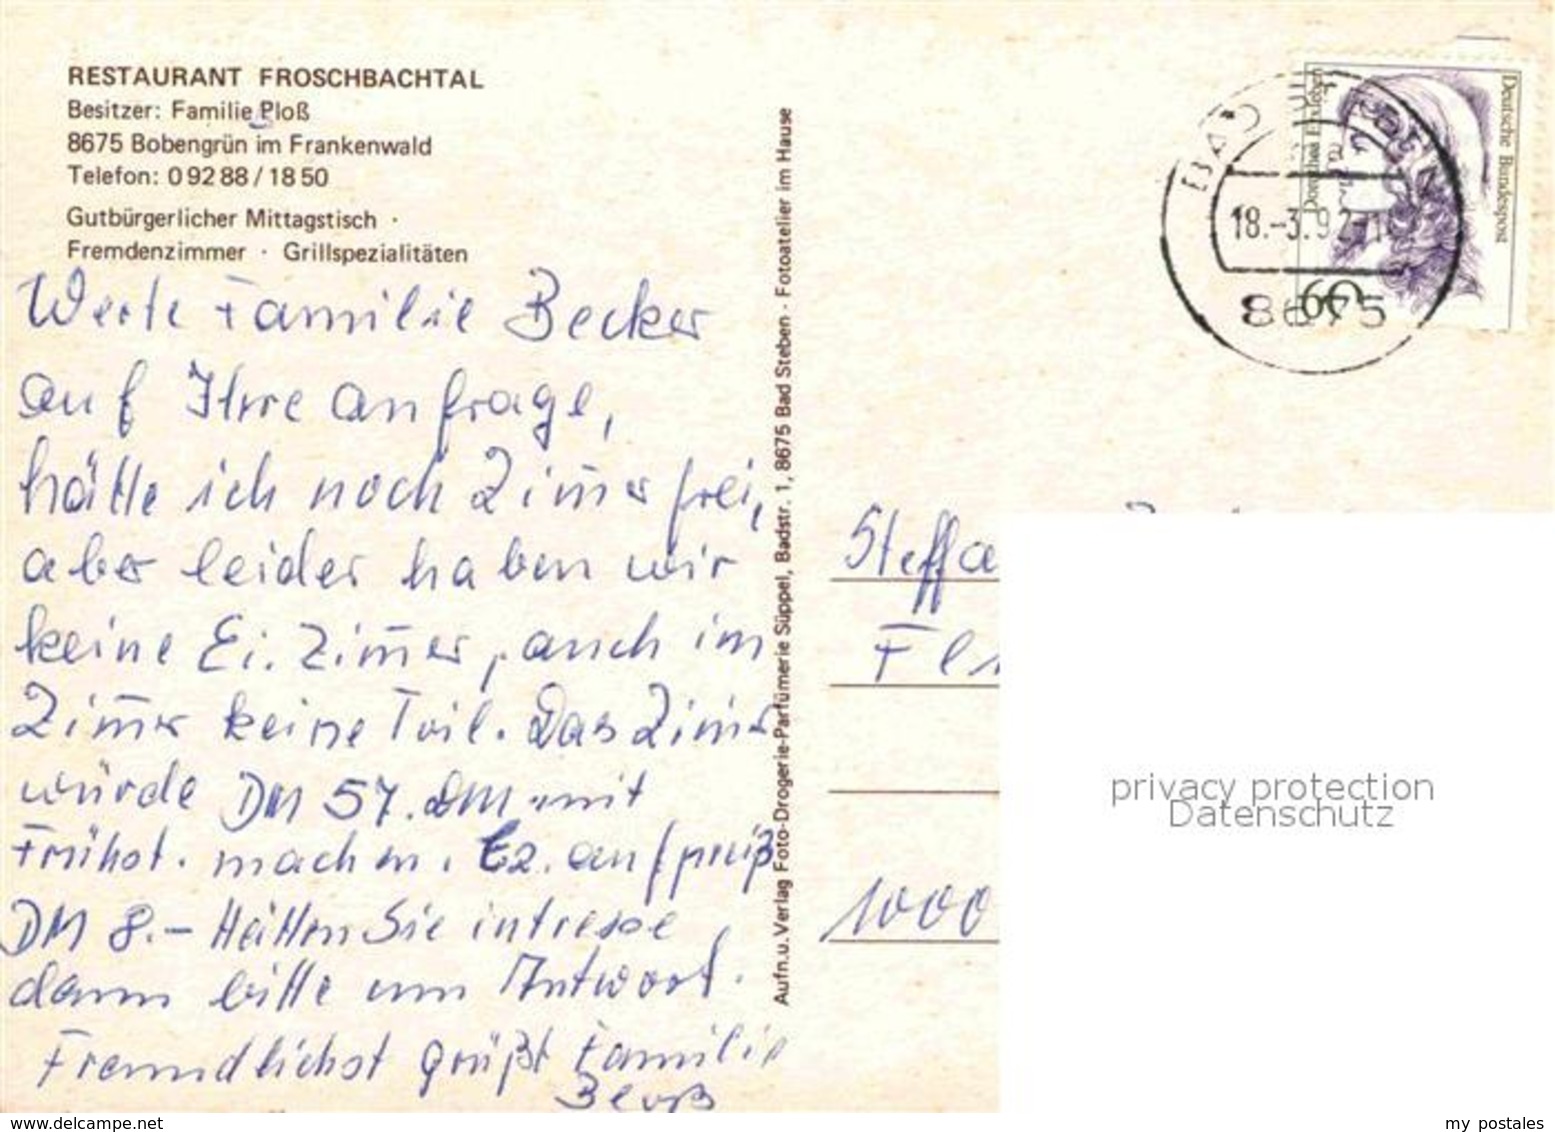 RESTAURANT FROSCHBACHTAL
Besitzer: Familie Ploß
8675 Bobengrün im Frankenwald
Telefon: 0 92 88 / 18 50
Gutbürgerlicher Mittagstisch ·
Fremdenzimmer · Grillspezialitäten
Werte Familie Becker
auf Ihre anfrage,
hätte ich noch Zim̄er frei,
aber leider haben wir
keine Ei. Zim̄er, auch im
Zim̄er keine Toil. Das Zim̄er
würde DM 57. DM mit
Frühst. machen. Ez. aufpreiß
DM 8.- Hätten Sie intresse
dann bitte um Antwort.
Freundlichst grüßt Familie
Bloß
Aufn.u.Verlag Foto-Drogerie-Parfümerie Süppel, Badstr. 1, 8675 Bad Steben · Fotoatelier im Hause
Deutsche Bundespost
Dorothea Erxleben
60
BAD STEBEN
18.-3.92
8675
Steffa
1000
privacy protection
Datenschutz
www.delcampe.net
my postales